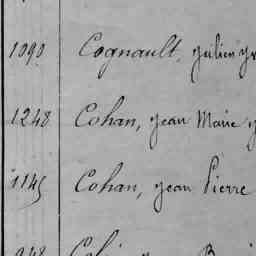 1090 Cognault, Julien
1248 Cohan, Jean Marie
1145 Cohan, Jean Pierre